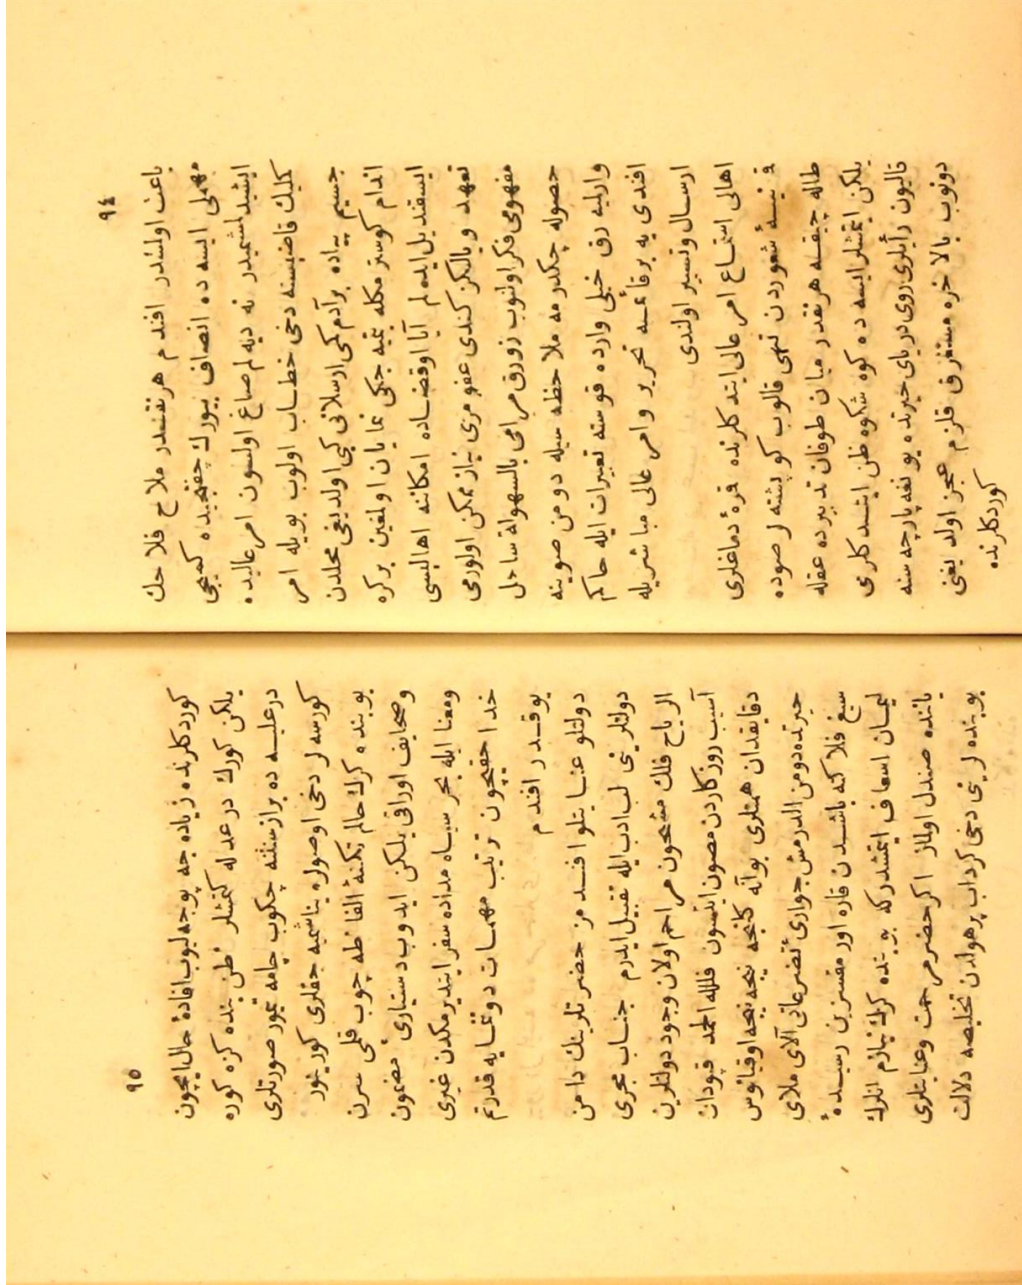 ٩٤
باعث اولنلدر افندم هرنقدر ملاح فلاحك
مهملی ایسه ده انصاف بیورك چفتجیده كیجی
ایشیدلمشمیدر نه دیه لم صاغ اولسون امر عالیده
كلیك قاضیسنه دخی خطاب اولوب بویله امر
جسیم پیاده بر آدم كمی ارسلانی كبی اولدیغی محلدن
اندام كوستر مكله بتیه جكی نمایان اولغین بركره
ایسقندیل ایده لم آیا اوقضاده امكانه اهالیسی
تعهد و یالكز كندی عفومزی نیاز ممكن اولورمی
مفهومی فكر اولنوب زورق مرامی بالسهوله ساحل
حصوله چكدرمه ملاحظه سیله دومن صوینه
وارلیه رق خیلی وارده قوسته تعبیرات ایله حاكم
افندی یه برقائمه تحریر وامر عالی مباشریله
ارسال وتسییر اولندی
اهالی استماع امر عالی ایتدكلرنده قرهٔ دماغلری
قنینهٔ شعوردن تهی قالوب كوپشته لر صوده
طاله چیقه هرنقدر میان طوفان تدبیرده عقله
یلكن ایتمشلرایسه ده كوه شكوه ظن ایتدكلری
قالیون رأیلری روی دریای حیرتده یونغه پارچه سنه
دونوب بالاخره مستغرق قلزم عجز اولدیغی
كوردكلرنده
٩٥
كوردكلرنده زیاده جه پوجه لیوب افادهٔ حال ایچون
یلكن كورك درعدله كتمشلر ظن بنده كزه كوره
درعلیه ده براز سننه چكوب جامه تمور صورتلری
كورسه لر دخی اوصوله یناشمیه جقلری كورینور
بوبنده كرك حالم تكنهٔ الفاظه چوب قلمی سرن
وصحایف اوراقی یلكن ایدوب دستیاری مضمون
ومعنا ایله بحر سیاه مداده سفر ایتدیرمكدن غیری
خدا حقیچون ترتیب مهمات دوننمایه قدرتم
یوقدر افندم
دولتلو عنایتلو افندمز حضرتلرینك دامن
دولتلرینی لب ادب ایله تقبیل ایدرم جناب مجری
الریاح فلك مشحون مراحم اولان وجود دولتلرین
آسیب روزكاردن مصون ایتسون فلله الحمد قپودان
دقایقدان همتلری بوآنه كلنجه نیجه نیجه اوقیانوس
حیرتده دومن الدرمش جواری تضرعاتی آلای ملای
سیغ فلاكته باشدن قاره اورمقسزین رسیدهٔ
لیمان اسعاف ایتمشدركه بوبنده كرك نیازم انلرك
یاننده صندل اولماز اكرحضرمی حمت وعنایتلری
بوبنده لرینی دخی كرداب پرهولدن تخلیصه دلالت